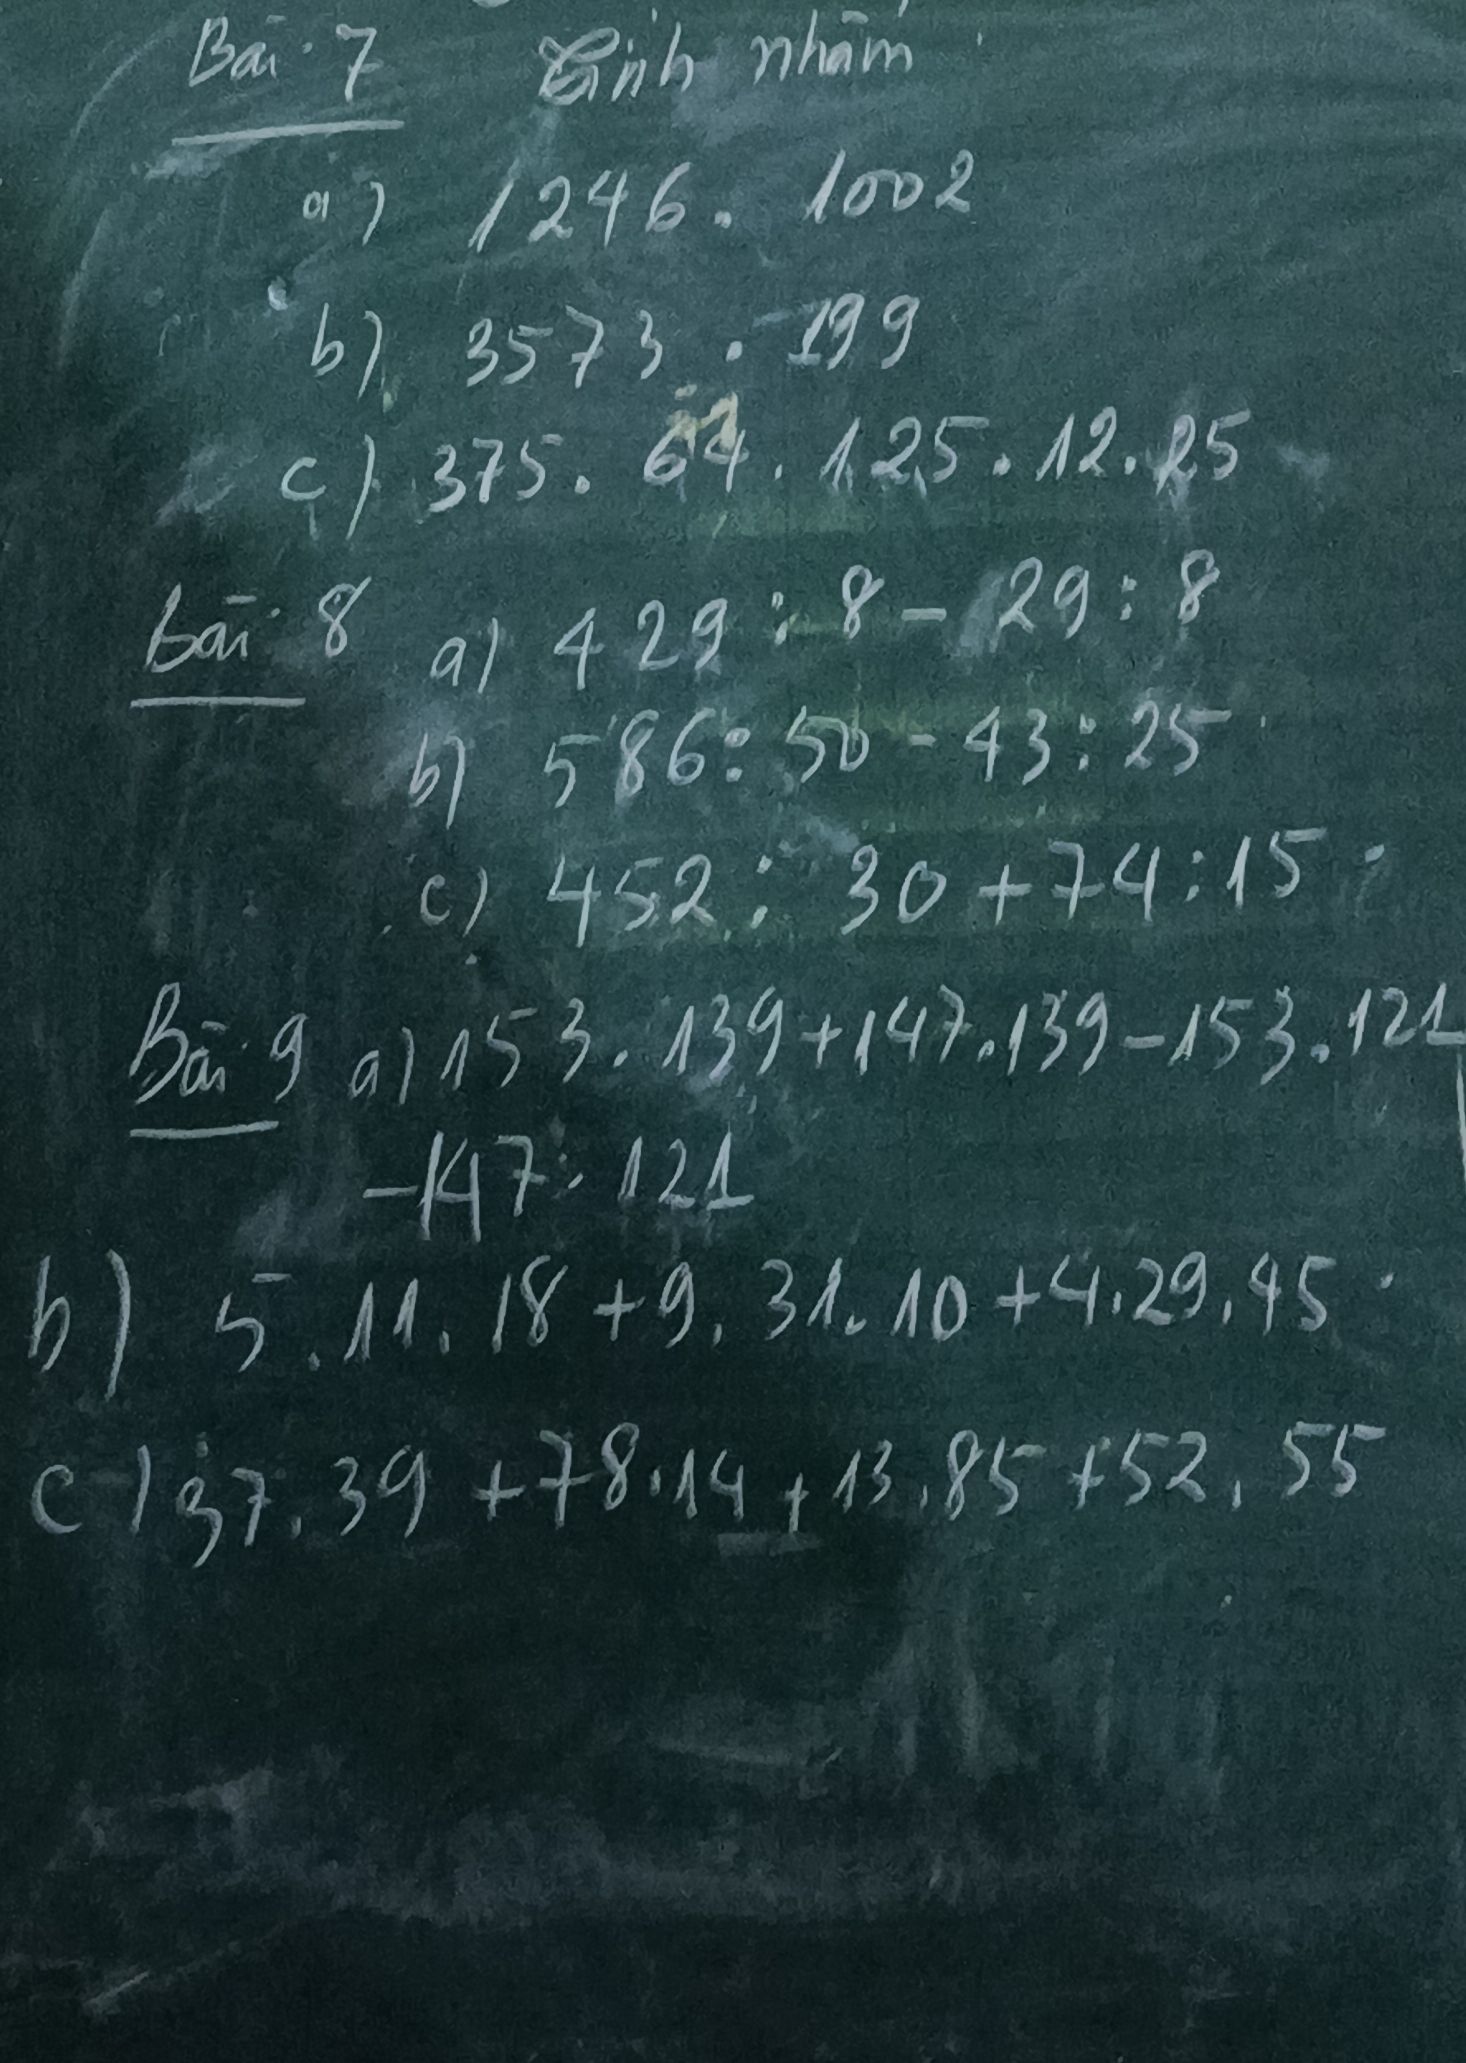 Bài 7 Tính nhẩm
a) 1246. 1002
b) 3573 . 199
c) 375. 64. 125. 12. 25
bài 8 a) 429 : 8 - 29 : 8
b) 586 : 50 - 43 : 25
c) 452 : 30 + 74 : 15
Bài 9 a) 153. 139 + 147. 139 - 153. 121
- 147 : 121
b) 5 . 11. 18 + 9. 31. 10 + 4. 29. 45
c) 37. 39 + 78. 14 + 13. 85 + 52. 55